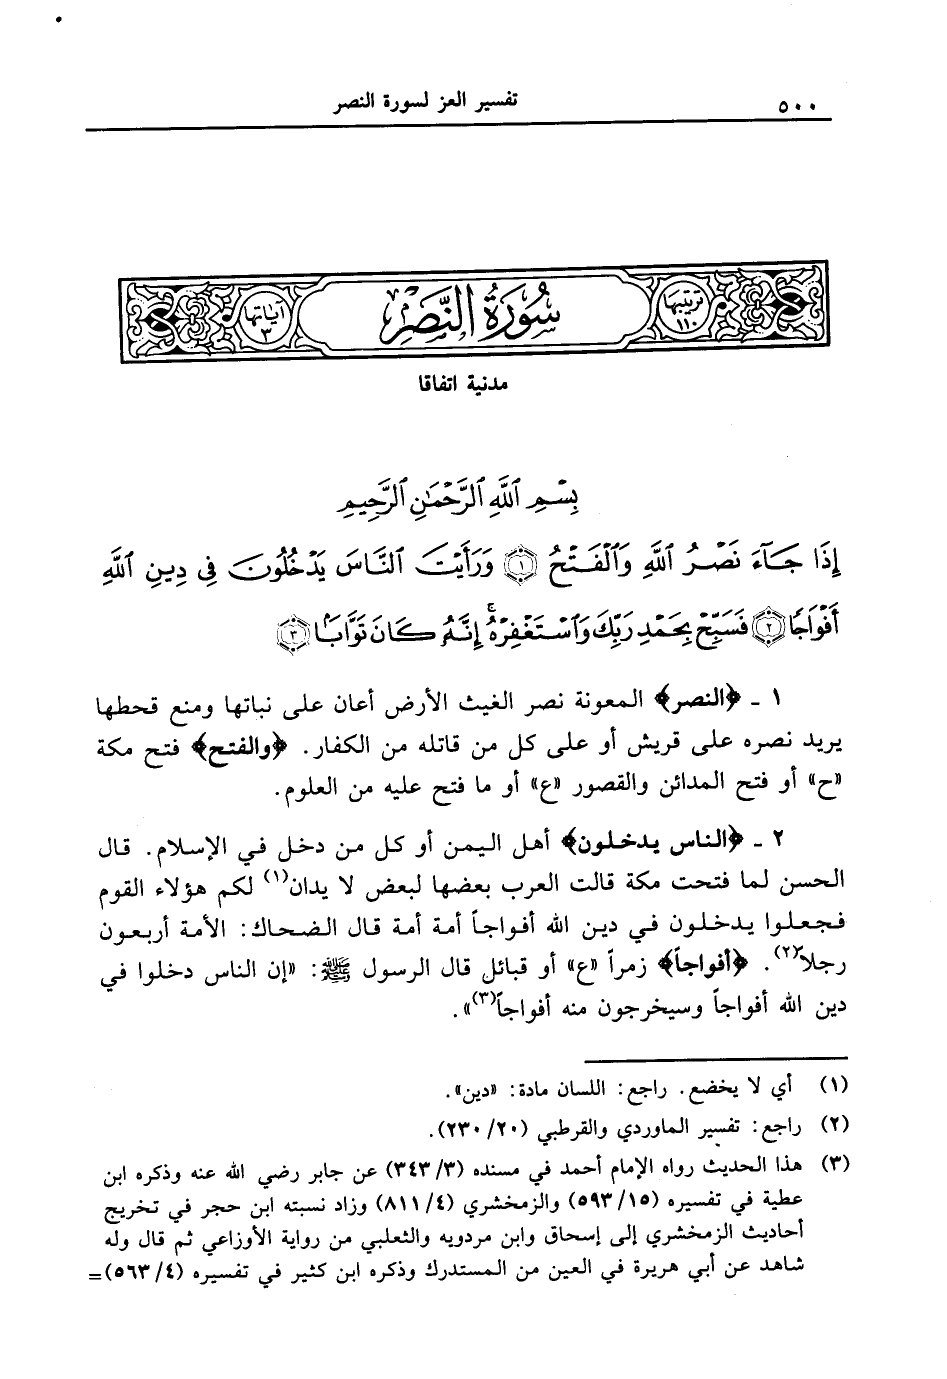 ٥٠٠ تفسير العز لسورة النصر
ترتيبها ١١٠ سُورَةُ النَّصْرِ آياتها ٣
مدنية اتفاقا
بِسْمِ ٱللَّهِ ٱلرَّحْمَٰنِ ٱلرَّحِيمِ
إِذَا جَآءَ نَصْرُ ٱللَّهِ وَٱلْفَتْحُ ١ وَرَأَيْتَ ٱلنَّاسَ يَدْخُلُونَ فِى دِينِ ٱللَّهِ
أَفْوَاجًا ٢ فَسَبِّحْ بِحَمْدِ رَبِّكَ وَٱسْتَغْفِرْهُ ۚ إِنَّهُۥ كَانَ تَوَّابًۢا ٣
١ - ﴿النصر﴾ المعونة نصر الغيث الأرض أعان على نباتها ومنع قحطها
يريد نصره على قريش أو على كل من قاتله من الكفار. ﴿والفتح﴾ فتح مكة
«ح» أو فتح المدائن والقصور «ع» أو ما فتح عليه من العلوم.
٢ - ﴿الناس يدخلون﴾ أهل اليمن أو كل من دخل في الإسلام. قال
الحسن لما فتحت مكة قالت العرب بعضها لبعض لا يدان(١) لكم هؤلاء القوم
فجعلوا يدخلون في دين الله أفواجاً أمة أمة قال الضحاك: الأمة أربعون
رجلاً(٢). ﴿أفواجاً﴾ زمراً «ع» أو قبائل قال الرسول ﷺ: «إن الناس دخلوا في
دين الله أفواجاً وسيخرجون منه أفواجاً(٣)».
(١) أي لا يخضع. راجع: اللسان مادة: «دين».
(٢) راجع: تفسير الماوردي والقرطبي (٢٣٠/٢٠).
(٣) هذا الحديث رواه الإمام أحمد في مسنده (٣٤٣/٣) عن جابر رضي الله عنه وذكره ابن
عطية في تفسيره (٥٩٣/١٥) والزمخشري (٨١١/٤) وزاد نسبته ابن حجر في تخريج
أحاديث الزمخشري إلى إسحاق وابن مردويه والثعلبي من رواية الأوزاعي ثم قال وله
شاهد عن أبي هريرة في العين من المستدرك وذكره ابن كثير في تفسيره (٥٦٣/٤)=